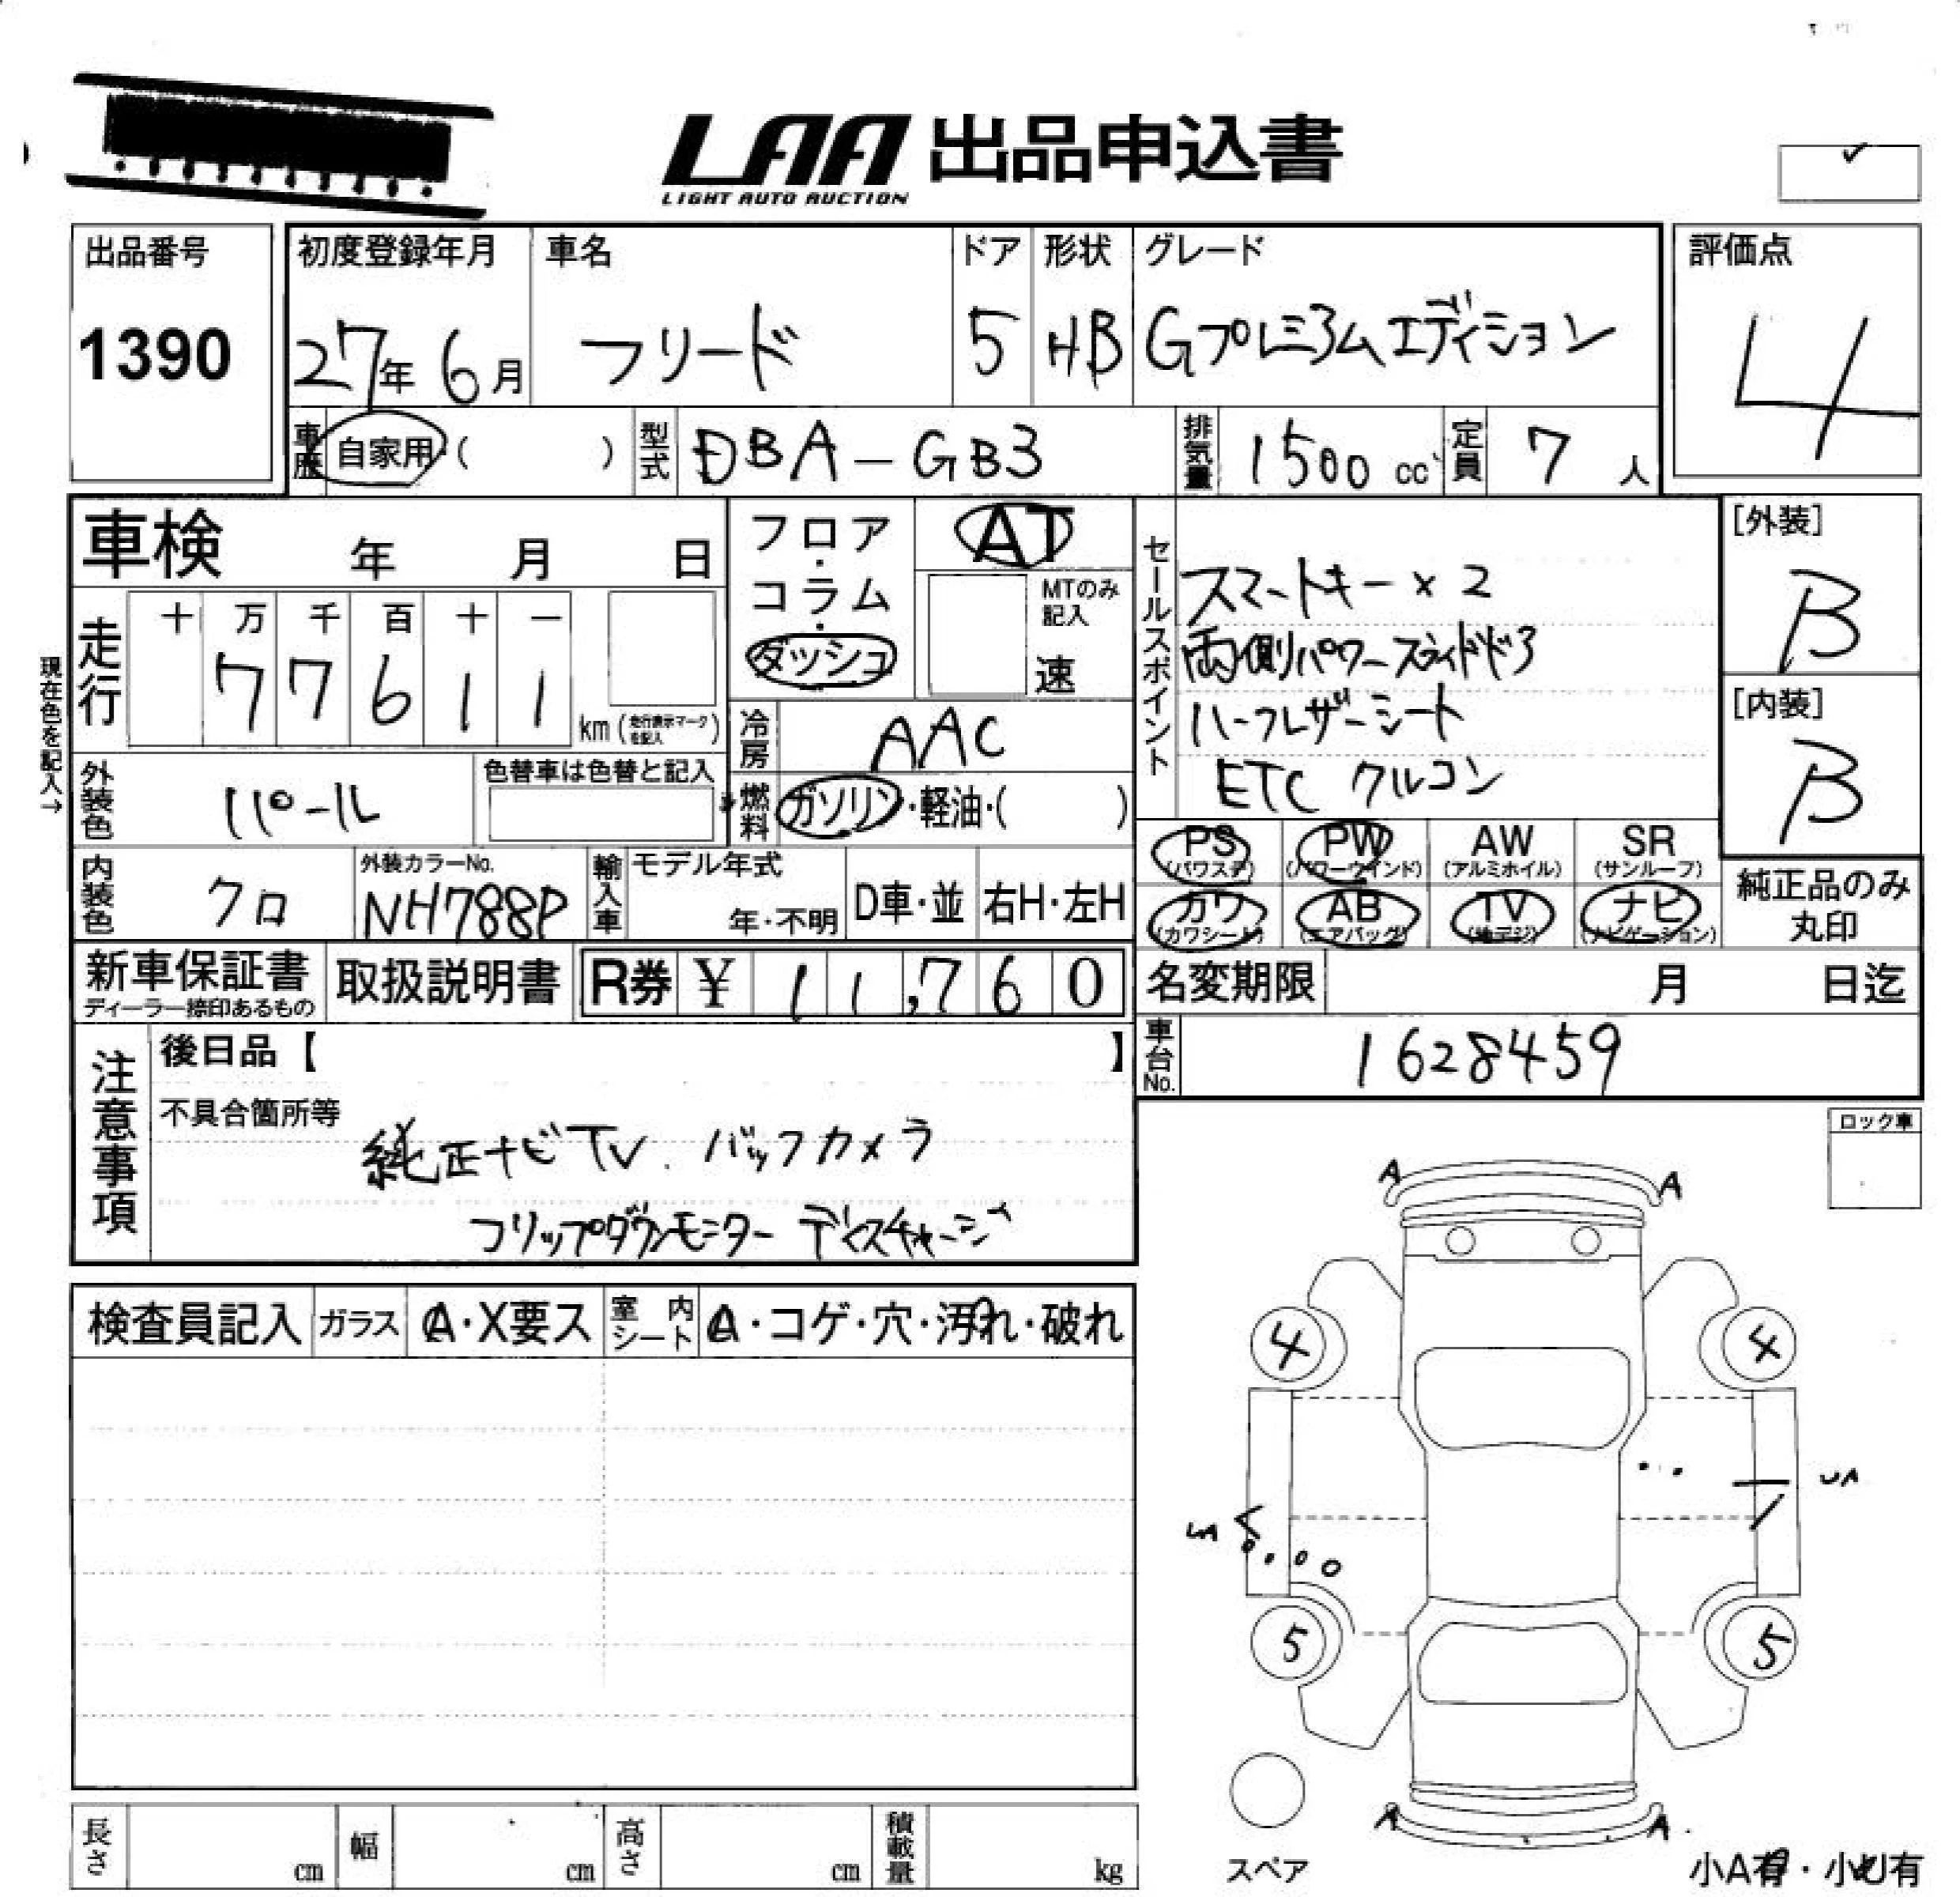 LAA 出品申込書
LIGHT AUTO AUCTION
出品番号
1390
初度登録年月
27年 6月
車名
フリード
ドア
5
形状
HB
グレード
Gプレミアムエディション
評価点
4
車歴
自家用・( )
型式
DBA-GB3
排気量
1500 cc
定員
7 人
車検 年 月 日
現在色を記入→
走行
十 万 千 百 十 一
7 7 6 1 1
km (走行表示マークを記入)
フロア・コラム・ダッシュ
AT
MTのみ記入
速
冷房
AAC
燃料
ガソリン・軽油・( )
外装色
パール
色替車は色替と記入
内装色
クロ
外装カラーNo.
NH788P
輸入車
モデル年式
年・不明
D車・並
右H・左H
セールスポイント
スマートキー×2
両側パワースライドドア
ハーフレザーシート
ETC クルコン
[外装]
B
[内装]
B
PS (パワステ)
PW (パワーウインド)
AW (アルミホイル)
SR (サンルーフ)
カワ (カワシート)
AB (エアバッグ)
TV (地デジ)
ナビ (ナビゲーション)
純正品のみ丸印
新車保証書
ディーラー捺印あるもの
取扱説明書
R券 ¥ 11,760
名変期限 月 日迄
車台No.
1628459
注意事項
後日品【 】
不具合箇所等
純正ナビTV. バックカメラ
フリップダウンモニター ディスチャージ
ロック車
検査員記入
ガラス
A・X要ス
室内シート
A・コゲ・穴・汚れ・破れ
A A
4 4
5 5
A A
スペア
小A有・小U有
長さ cm
幅 cm
高さ cm
積載量 kg